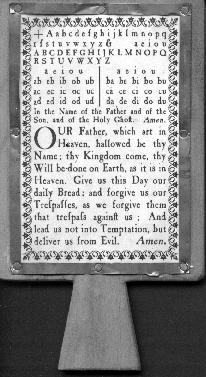 +Aabcdefghijklmnopq
rſstuvwxyz& aeiou
ABCDEFGHIJKLMNOPQ
RSTUVWXYZ
a e i o u | a e i o u
ab eb ib ob ub | ba be bi bo bu
ac ec ic oc uc | ca ce ci co cu
ad ed id od ud | da de di do du
In the Name of the Father and of the
Son, and of the Holy Ghoſt. Amen.
OUR Father, which art in
Heaven, hallowed be thy
Name; thy Kingdom come, thy
Will be done on Earth, as it is in
Heaven. Give us this Day our
daily Bread; and forgive us our
Treſpaſſes, as we forgive them
that treſpaſs againſt us; And
lead us not into Temptation, but
deliver us from Evil. Amen.